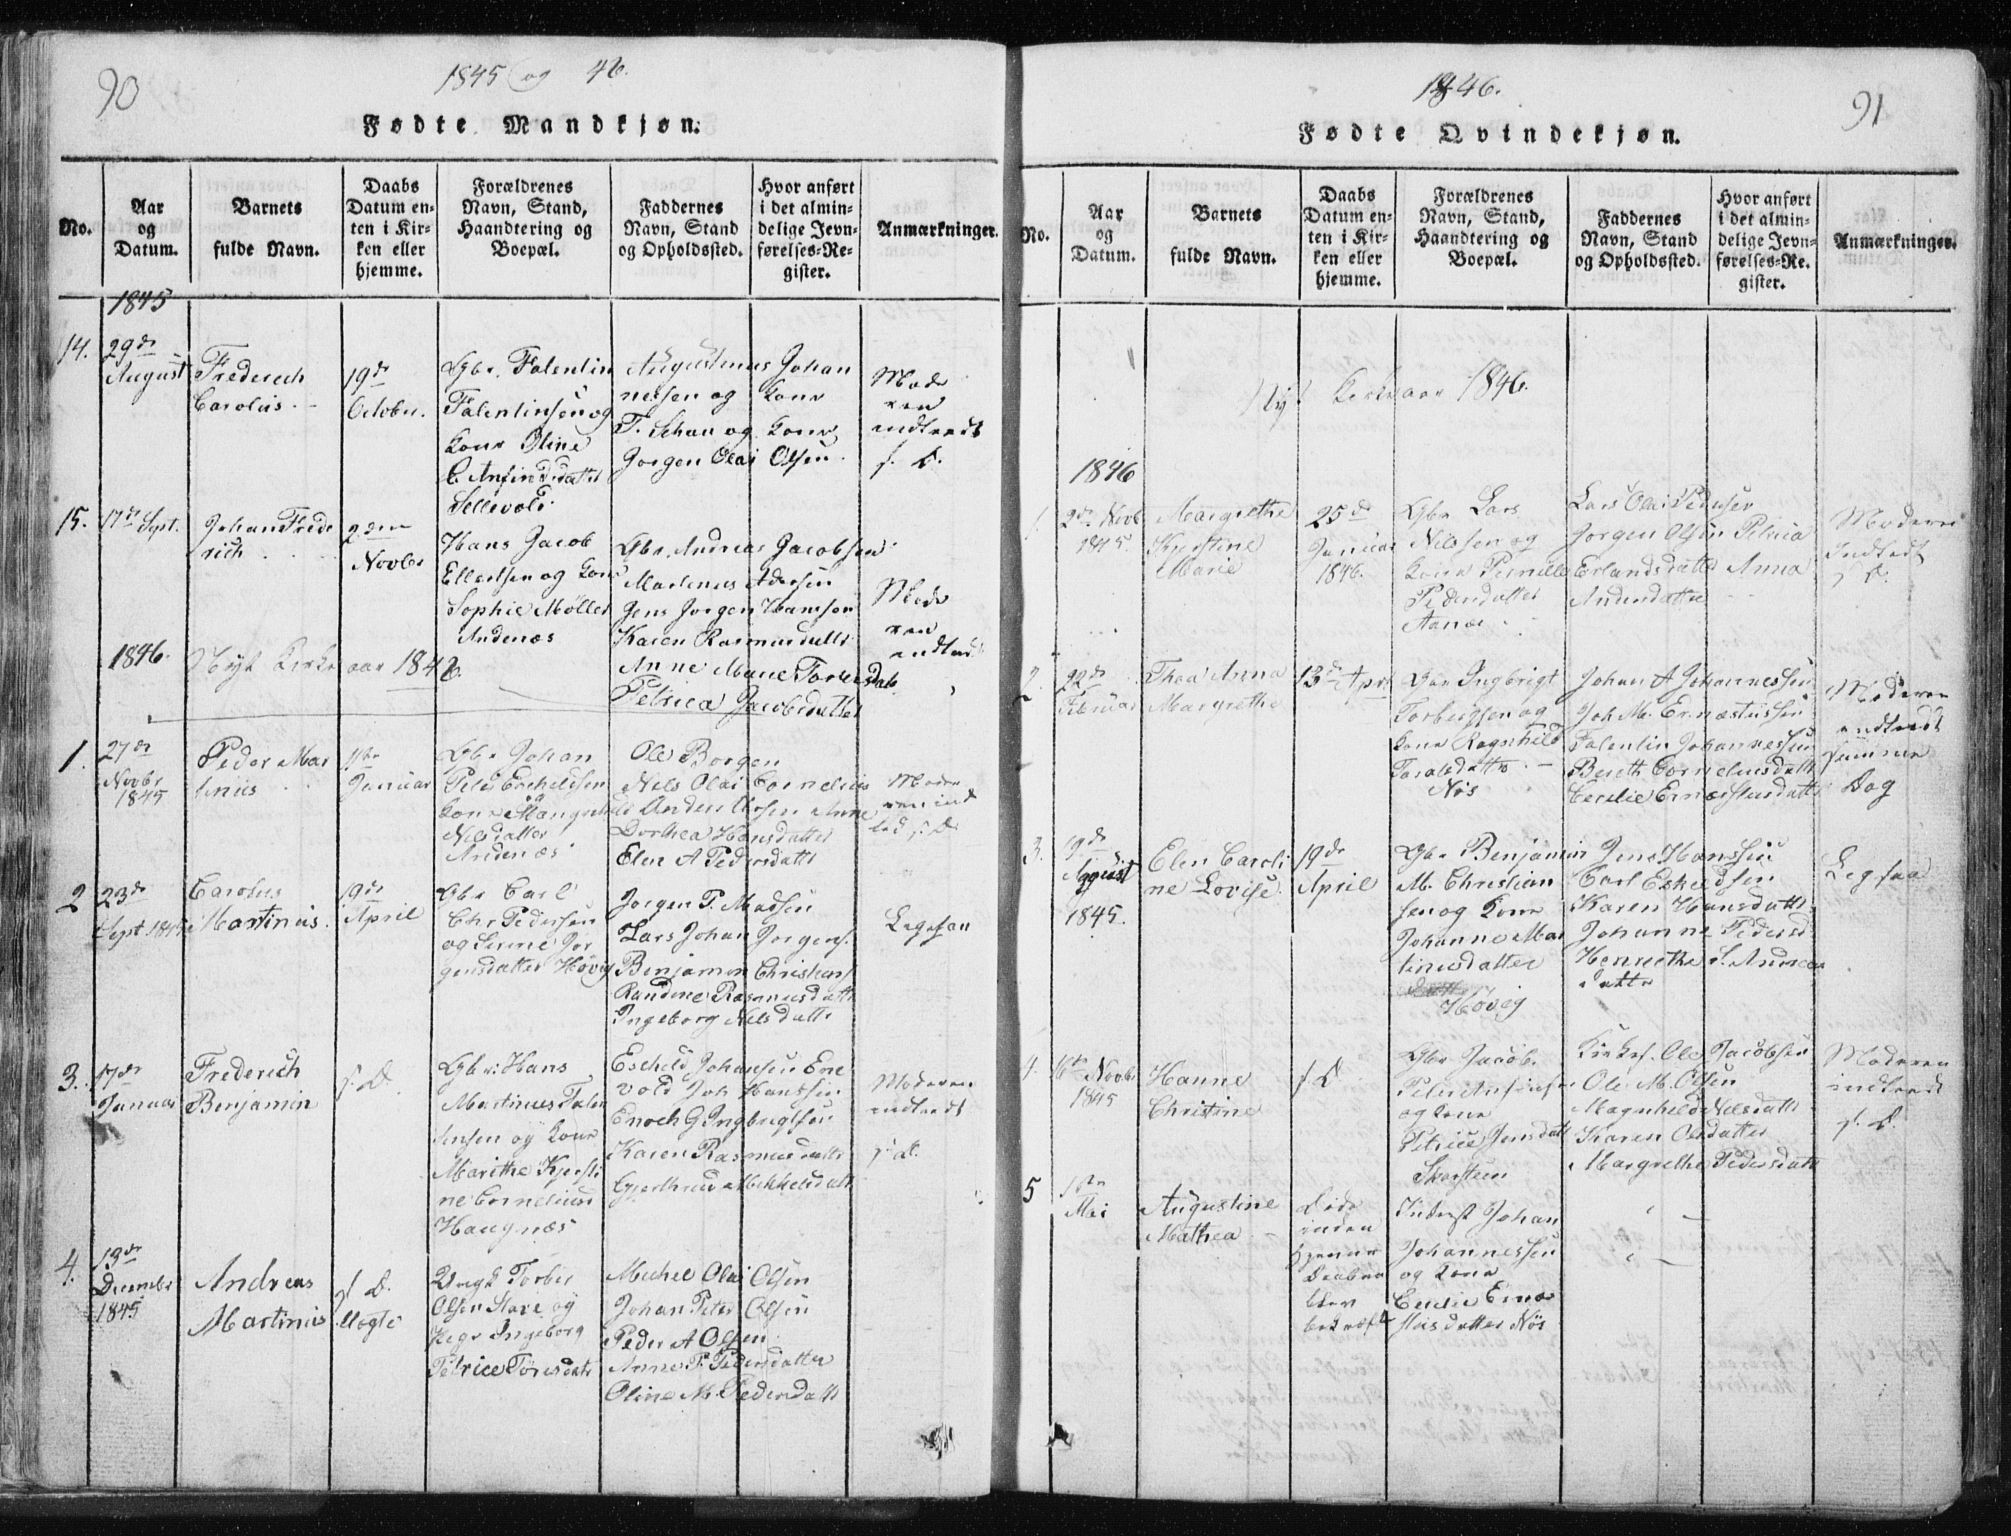 90
1845 og 46.
Fødte Mandkjøn.
No.
Aar
og
Datum.
Barnets
fulde Navn.
Daabs
Datum en-
ten i Kir-
ken eller
hjemme.
Forældrenes
Navn, Stand,
Haandtering og
Boepæl.
Faddernes
Navn, Stand
og Opholdssted.
Hvor anført
i det almin-
delige Jevn-
førelses-Re-
gister.
Anmærkninger.
1845
14.
29de
August
Frederech
Carolus.
19de
October.
Gbr. Falentin
Falentinsen og
Kone Oline
C. Anfindsdatter
Sellevold.
Augustinus Johan
nessen og Kone
T. Schau og Kone
Jørgen Olai Olsen.
Mode
ren
indtraadt
s. D.
15.
17de Sept.
Johan Frede
rich
2den
Novbr
Hans Jacob
Ellertsen og Kone
Sophie Møller
Andenæs
Gbr. Andreas Jacobsen
Martinus Adersen
Jens Jørgen Hansen
Karen Rasmusdatter
Anne Marie Toresdatt
Petrica Jacobsdatter
Mode
ren
indtraadt
1846.
Nyt Kirke aar 1846.
1.
27de
Novbr
1845
Peder Mar
tinus
1ste
Januar
Gbr Johan
Peter Escheldsen
Kone Mangnhild
Nilsdatter
Andenæs
Ole Borgen
Nels Olai Cornelius
Anders Olsen Anne
Dorthea Hansdatter
Elen A Pedersdatt
Mode
ren ind
led s. D.
2
23de
Sept. 1845
Carolus
Martinus.
19de
April
Gbr Carl
Chr Pedersen
og Sirine Jør
gensdatter Høvig
Jørgen P. Madsen
Lars Johan Jørgens.
Benjamin Christians
Randine Rasmusdatt
Ingeborg Nilsdatt
Legesaa
3.
17de
Januar
Frederich
Benjamin
s. D.
Gbr: Hans
Martinus Falen
tinsen og Kone
Marithe Kjersti
ne Cornelius
Haugnæs
Escheld Johansen Ene
vold Joh Hanssen
Enoch G Ingbrigtsen
Karen Rasmusdatt
Gjerthrud Mikkelsdatt
Moderen
indtraadt
s. D.
4.
13de
December
1845
Andreas
Martinus
s. D.
Uegte
Ungk Torber
Olsen Stave og
Pige Ingeborg
Petrice Toresdatt
Mechel Olai Olsen
Johan Peter Olsen
Peder A Olsen
Anne P. Pedersdatter
Oline M. Pedersdatt
1846.
91
Fødte Qvindekjøn.
No.
Aar
og
Datum.
Barnets
fulde Navn.
Daabs
Datum en-
ten i Kir-
ken eller
hjemme.
Forældrenes
Navn, Stand,
Haandtering og
Boepæl.
Faddernes
Navn, Stand
og Opholdssted.
Hvor anført
i det almin-
delige Jevn-
førelses-Re-
gister.
Anmærkninger.
Nyt Kirkeaar 1846.
1846
1.
2de Novb
1845.
Margrethe
Kjerstine
Marie
25de
Januar
1846.
Gbr Lars
Nilssen og
Kone Pernille
Pedersdatter
Aanæs
Lars Olai Pedersen
Jørgen Olsen Petrica
Erlandsdatter Anna
Andersdatter
Moderen
Indtradt
s. D.
2.
22de
Februar
Thea Anna
Margrethe
13de April
Gbr Ingbrigt
Torbersen og
Kone Ragnhild
Taralsdatter
Nøs
Johan A Johannessen
Joh M. Ernæstussen
Falentin Johannessen
Bereth Corneliusdatt
Cecilie Ernæstusdatt
Moderen
indtraadt
samme
Dag
3.
19de
August
1845.
Elen Caroli
ne Lovise
19de
April
Gbr Benjamin
M. Christian
sen og Kone
Johanne Mar
tinusdatter
Høvig
Jens Hanssen
Carl Eskeldsen
Karen Hansdatt
Johanne Pedersd
Henriethe S. Andreas
datter
Legsaa
4.
16de Novbr
1845
Hanne
Christine
s D
Gbr Jacob
Peter Anfinsen
og Kone
Petrice Jensdatt
Skarsteen
Kirkes. Ole Jacobsen
Ole M. Olsen
Magnhild Nilsdatt
Karen Olsdatter
Margrethe Pedersdatt
Moderen
indtraadt
s. D.
5
16de
Mai
Augustine
Mathea
Døde
inden
Hjemme
Daaben
blev
bekræft
Inderst Johan
Johannessen
og Kone
Cecilie Ernæ
stusdatter Nøs